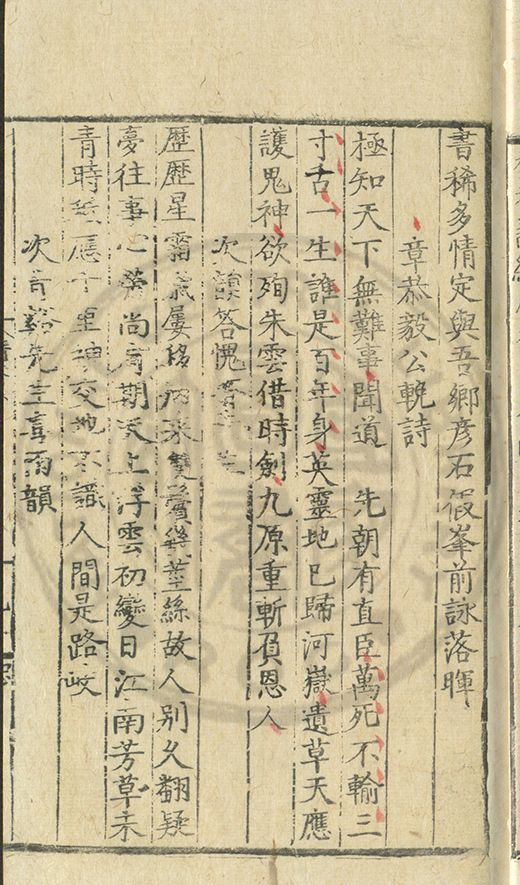 書稀多情定與吾鄉彥石假峯前詠落暉
章恭毅公輓詩
極知天下無難事聞道 先朝有直臣萬死不輸三
寸舌一生誰是百年身英靈地已歸河嶽遺草天應
護鬼神欲殉朱雲借時劍九原重斬負恩人
次韻答愧
歷歷星霜屢移雙鬢幾莖絲故人別久翻疑
夢往事心勞尚有期天上浮雲初變日江南芳草未
青時應千里神交地不識人間是路岐
次青谿先生喜雨韻